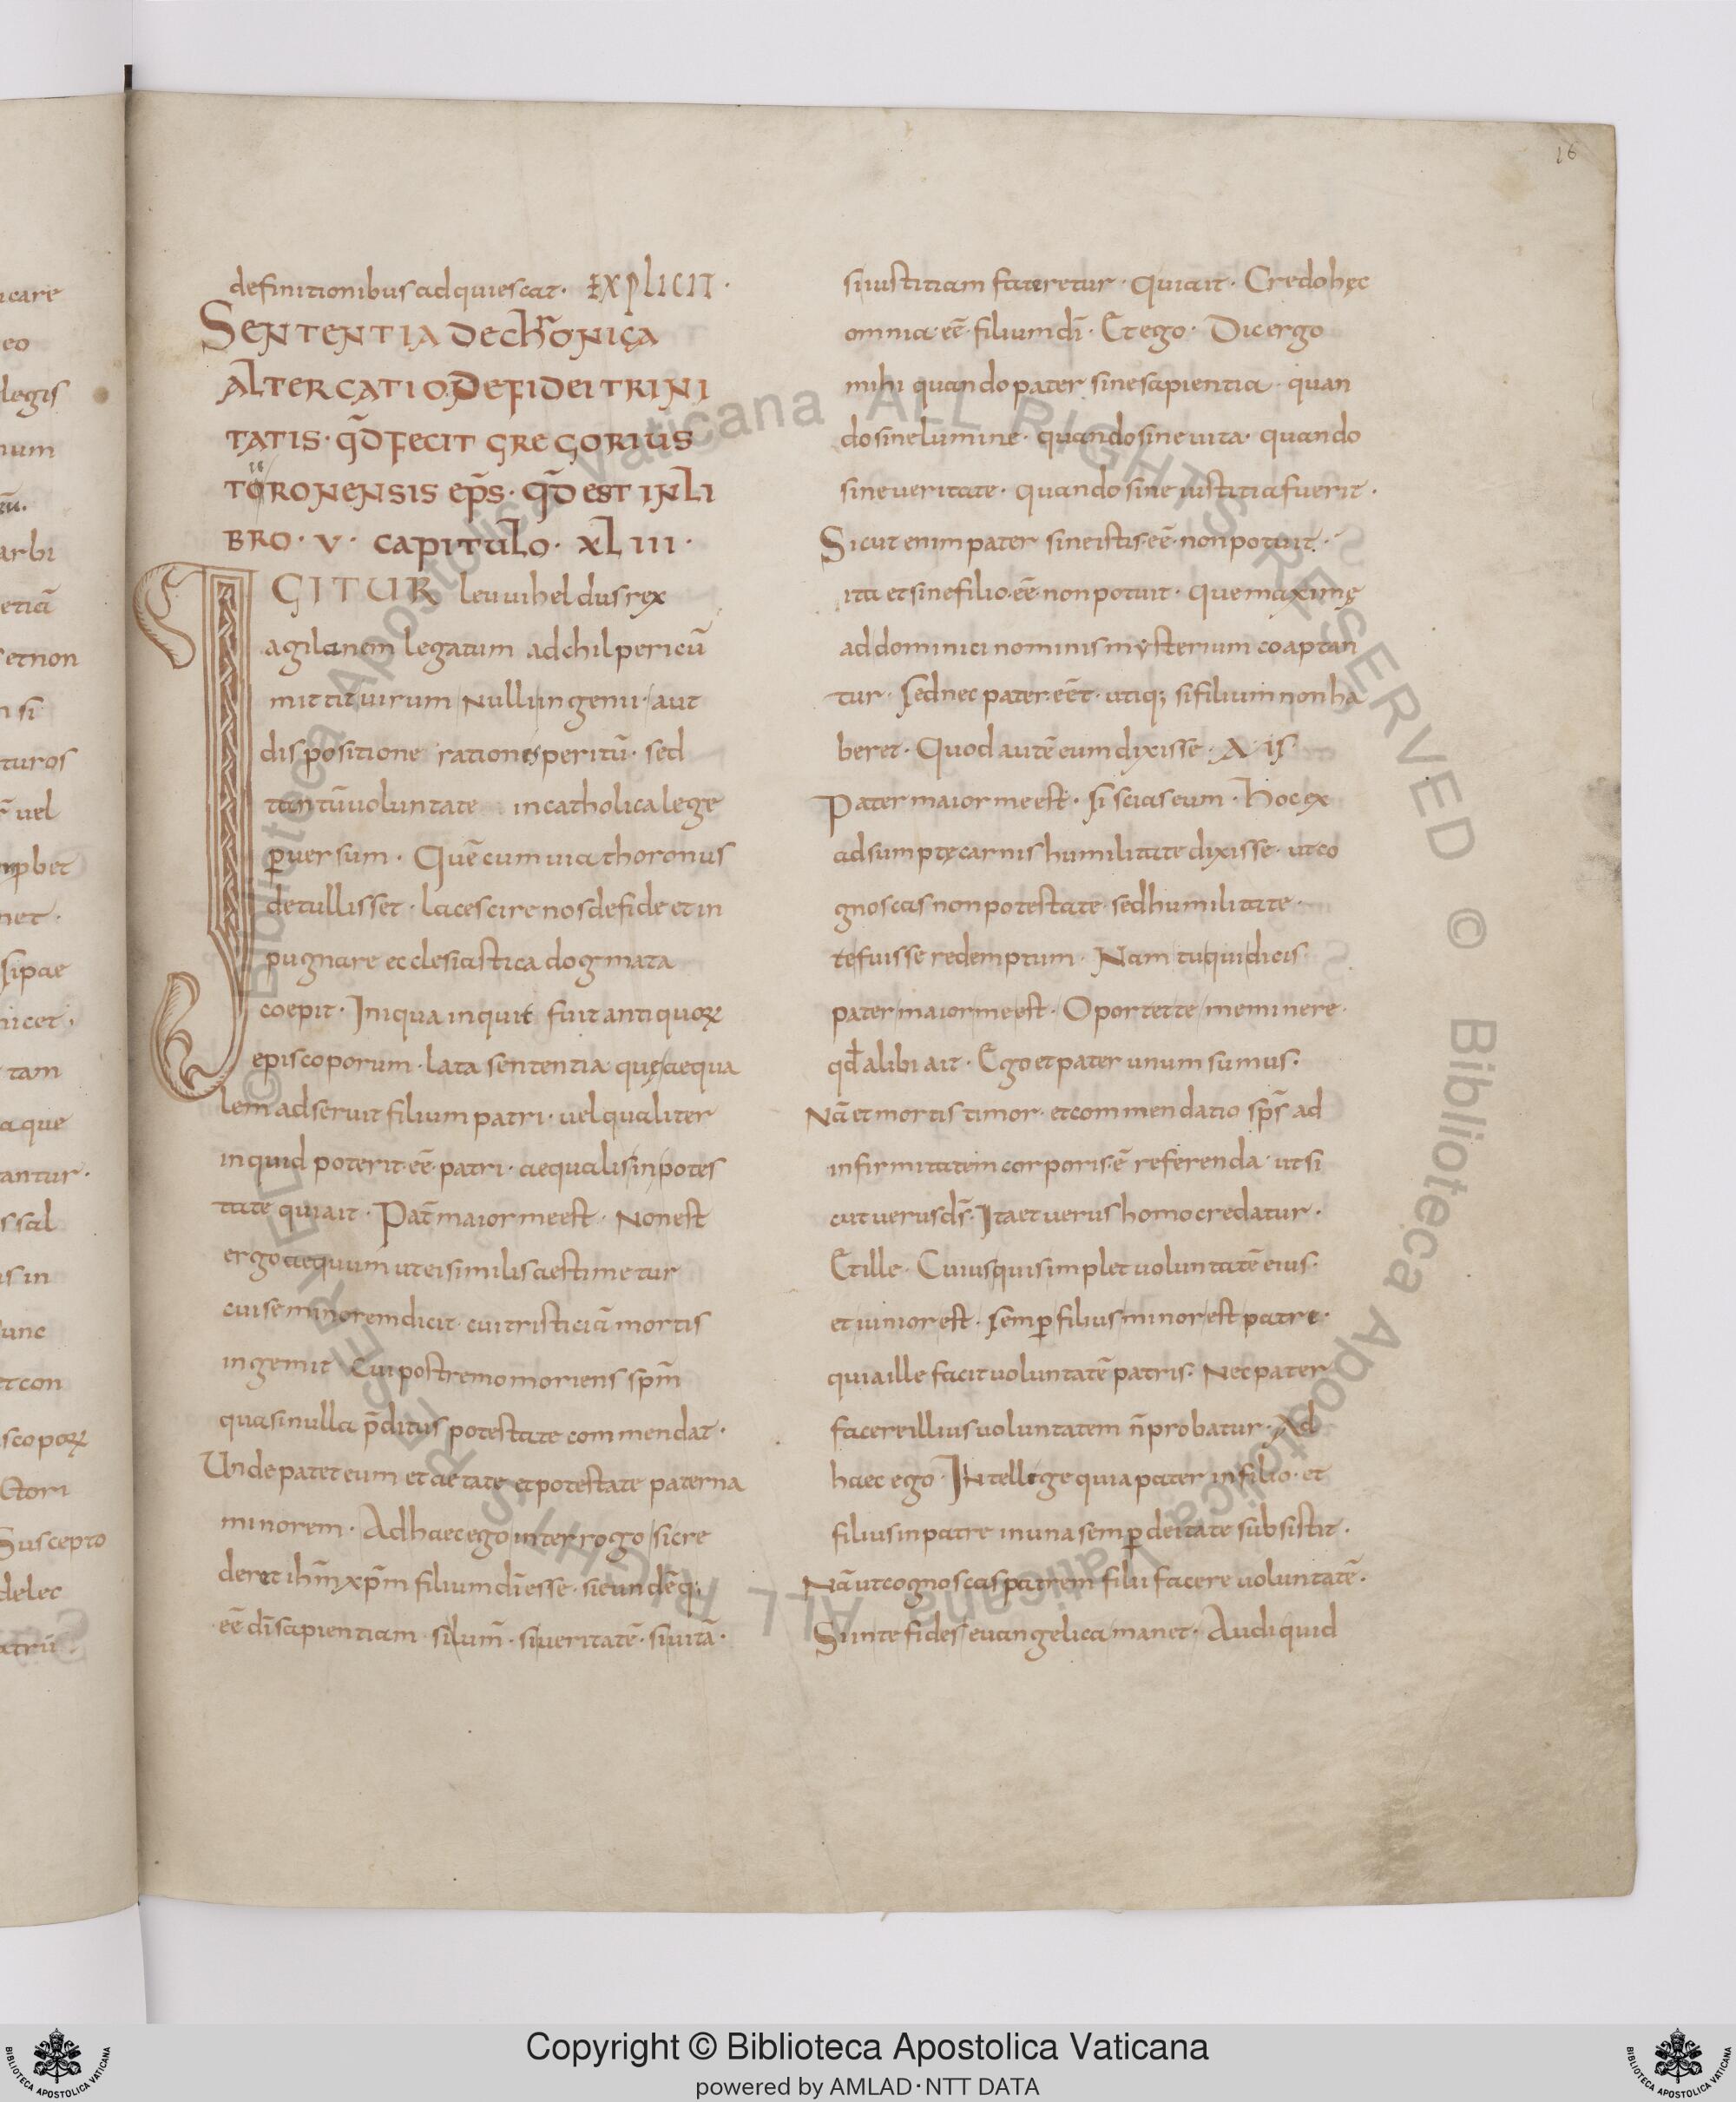 16
definitionibus adquiescat · EXPLICIT ·
SENTENTIA DE CHRŌNICA
ALTERCATIO DE FIDEI TRINI
TATIS · QD̄ FECIT GREGORIUS
TORONENSIS EP̄S · QD̄ EST IN LI
BRO · V · CAPITULO · XLIII ·
IGITUR leuuiheldus rex
agilanem legatum ad chilpericū
mittit uirum nulli ingenii · aut
dispositione rationes peritū · sed
tantū uoluntate in catholica lege
ꝑuersum · Quē cum uia thoronus
detullisset · lacescire nos de fide et in
pugnare ecclesiastica dogmata
coepit · Iniqua inquit fuit antiquoꝝ
episcoporum · lata sententia quę aequa
lem adseruit filium patri · uel qualiter
inquid poterit · eē · patri · aequalis in potes
tate qui ait · Pat̄ maior me est · Non est
ergo aequum ut ei similis aestimetur
cui se minorem dicit · cui tristiciā mortis
ingemit · Cui postremo moriens sp̄m
quasi nulla p̄ditus potestate commendat ·
Unde patet eum et aetate et potestate paterna
minorem · Ad haec ego interrogo si cre
deret ih̄m xp̄m filium dī esse · sieundēq;
eē dī sapientiam · si lum̄ · si ueritatē · si uitā ·
si iustitiam fateretur · Qui ait · Credo hęc
omnia · eē · filium dī · Et ego · Dic ergo
mihi quando pater sine sapientia · quan
do sine lumine · quando sine uita · quando
sine ueritate · quando sine iustitia fuerit ·
Sicut enim pater sine istis · eē · non potuit ·
ita et sine filio · eē · non potuit · Que maximę
ad dominici nominis mysterium coaptan
tur · Sed nec pater · eēt · utiq; si filium non ha
beret · Quod autē eum dixisse · Ais ·
Pater maior me est · Si scias eum · Hoc ex
adsumptę carnis humilitate dixisse · ut co
gnoscas non potestate sed humilitate ·
te fuisse redemptum · Nam tu qui dicis
pater maior me est · Oportet te meminere ·
qđ alibi ait · Ego et pater unum sumus ·
Nā et mortis timor · et commendatio sp̄s ad
infirmitatem corporis · ē referenda · ut si
cut uerus d̄s · Ita et uerus homo credatur ·
Et ille · Cuius quis implet uoluntatē eius ·
et iunior est · Semꝑ filius minor est patre ·
quia ille facit uoluntatē patris · Nec pater
facere illius uoluntatem n̄ probatur · Ad
haec ego · Intellege quia pater in filio · et
filius in patre in una semꝑ deitate subsistit ·
Nā ut cognoscas patrem filii facere uoluntatē ·
Si in te fides euangelica manet · Audi quid
Copyright © Biblioteca Apostolica Vaticana
powered by AMLAD·NTT DATA